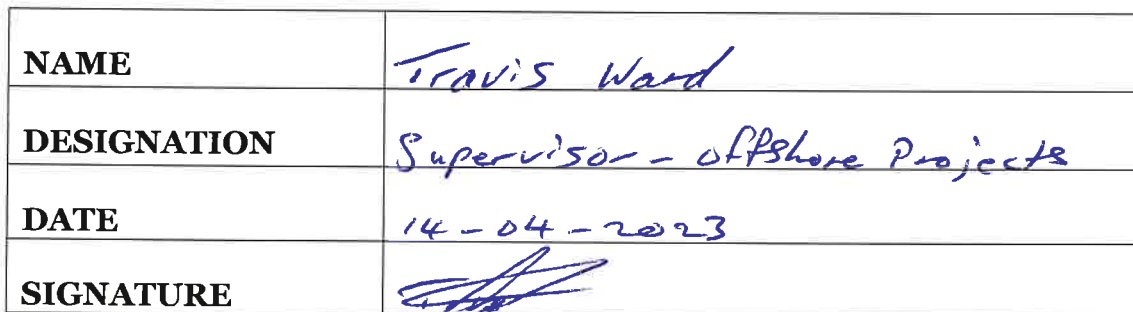 NAME Travis Ward
DESIGNATION Supervisor - Offshore Projects
DATE 14-04-2023
SIGNATURE